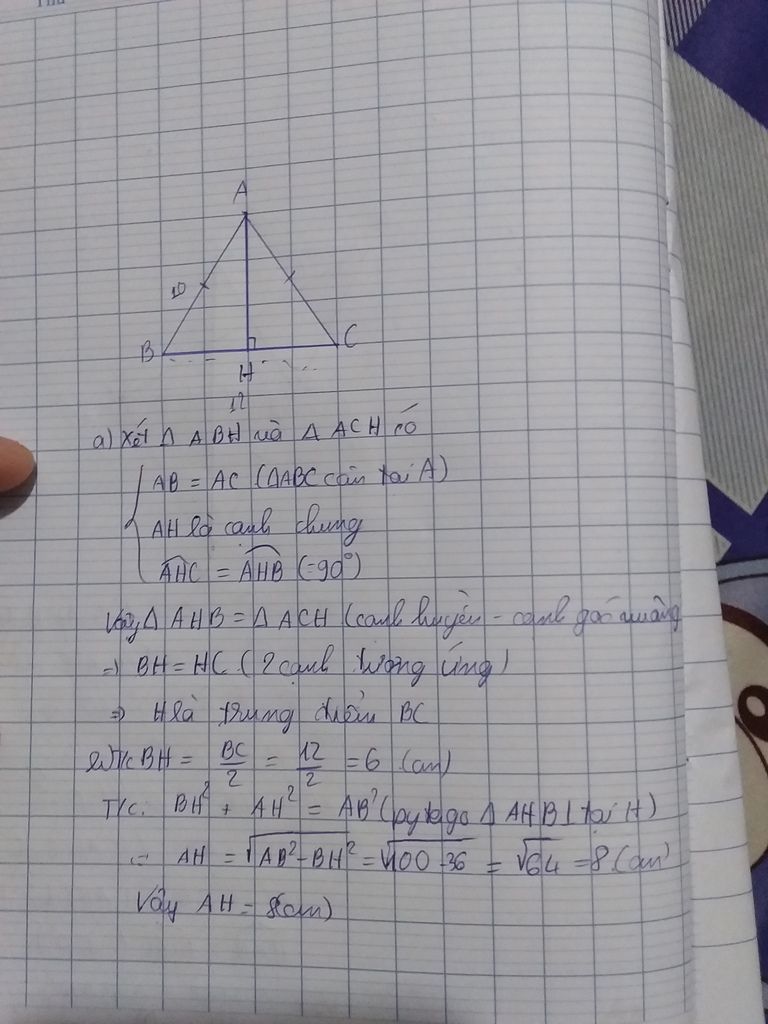 A
10
B
C
H
12
a) Xét Δ ABH và Δ ACH có
AB = AC (ΔABC cân tại A)
AH là cạnh chung
AHC = AHB (=90°)
Vậy Δ AHB = Δ ACH (cạnh huyền - cạnh góc vuông
=> BH = HC (2 cạnh tương ứng)
=> H là trung điểm BC
b) T/c BH = BC/2 = 12/2 = 6 (cm)
T/c: BH² + AH² = AB² (pytago Δ AHB ⊥ tại H)
=> AH = √AB² - BH² = √100 - 36 = √64 = 8 (cm)
Vậy AH = 8(cm)